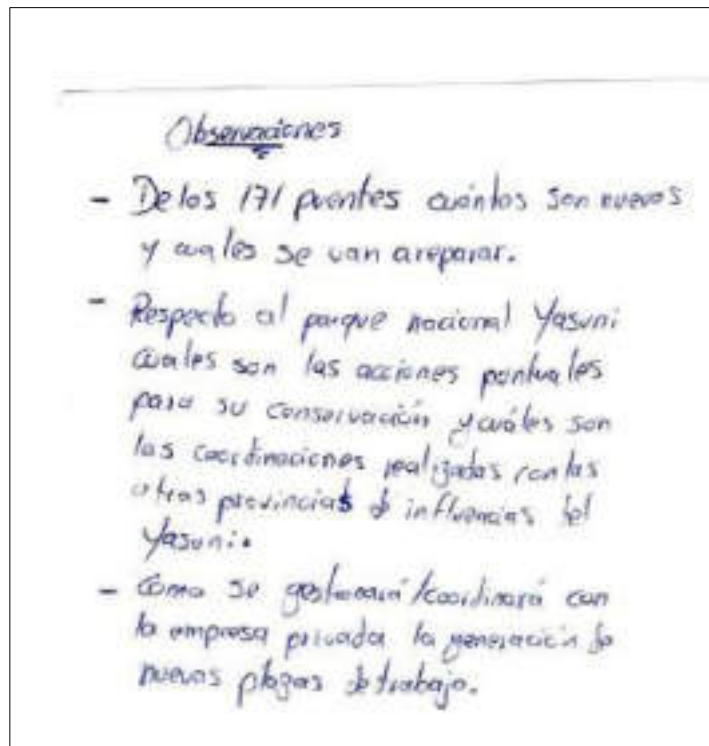 Observaciones
- De los 171 puentes cuántos son nuevos
y cuales se van a reparar.
- Respecto al parque nacional Yasuni
cuales son las acciones puntuales
para su conservación y cuáles son
las coordinaciones realizadas con las
otras provincias de influencias del
Yasuni.
- Como se gestionará/coordinará con
la empresa privada la generación de
nuevas plazas de trabajo.